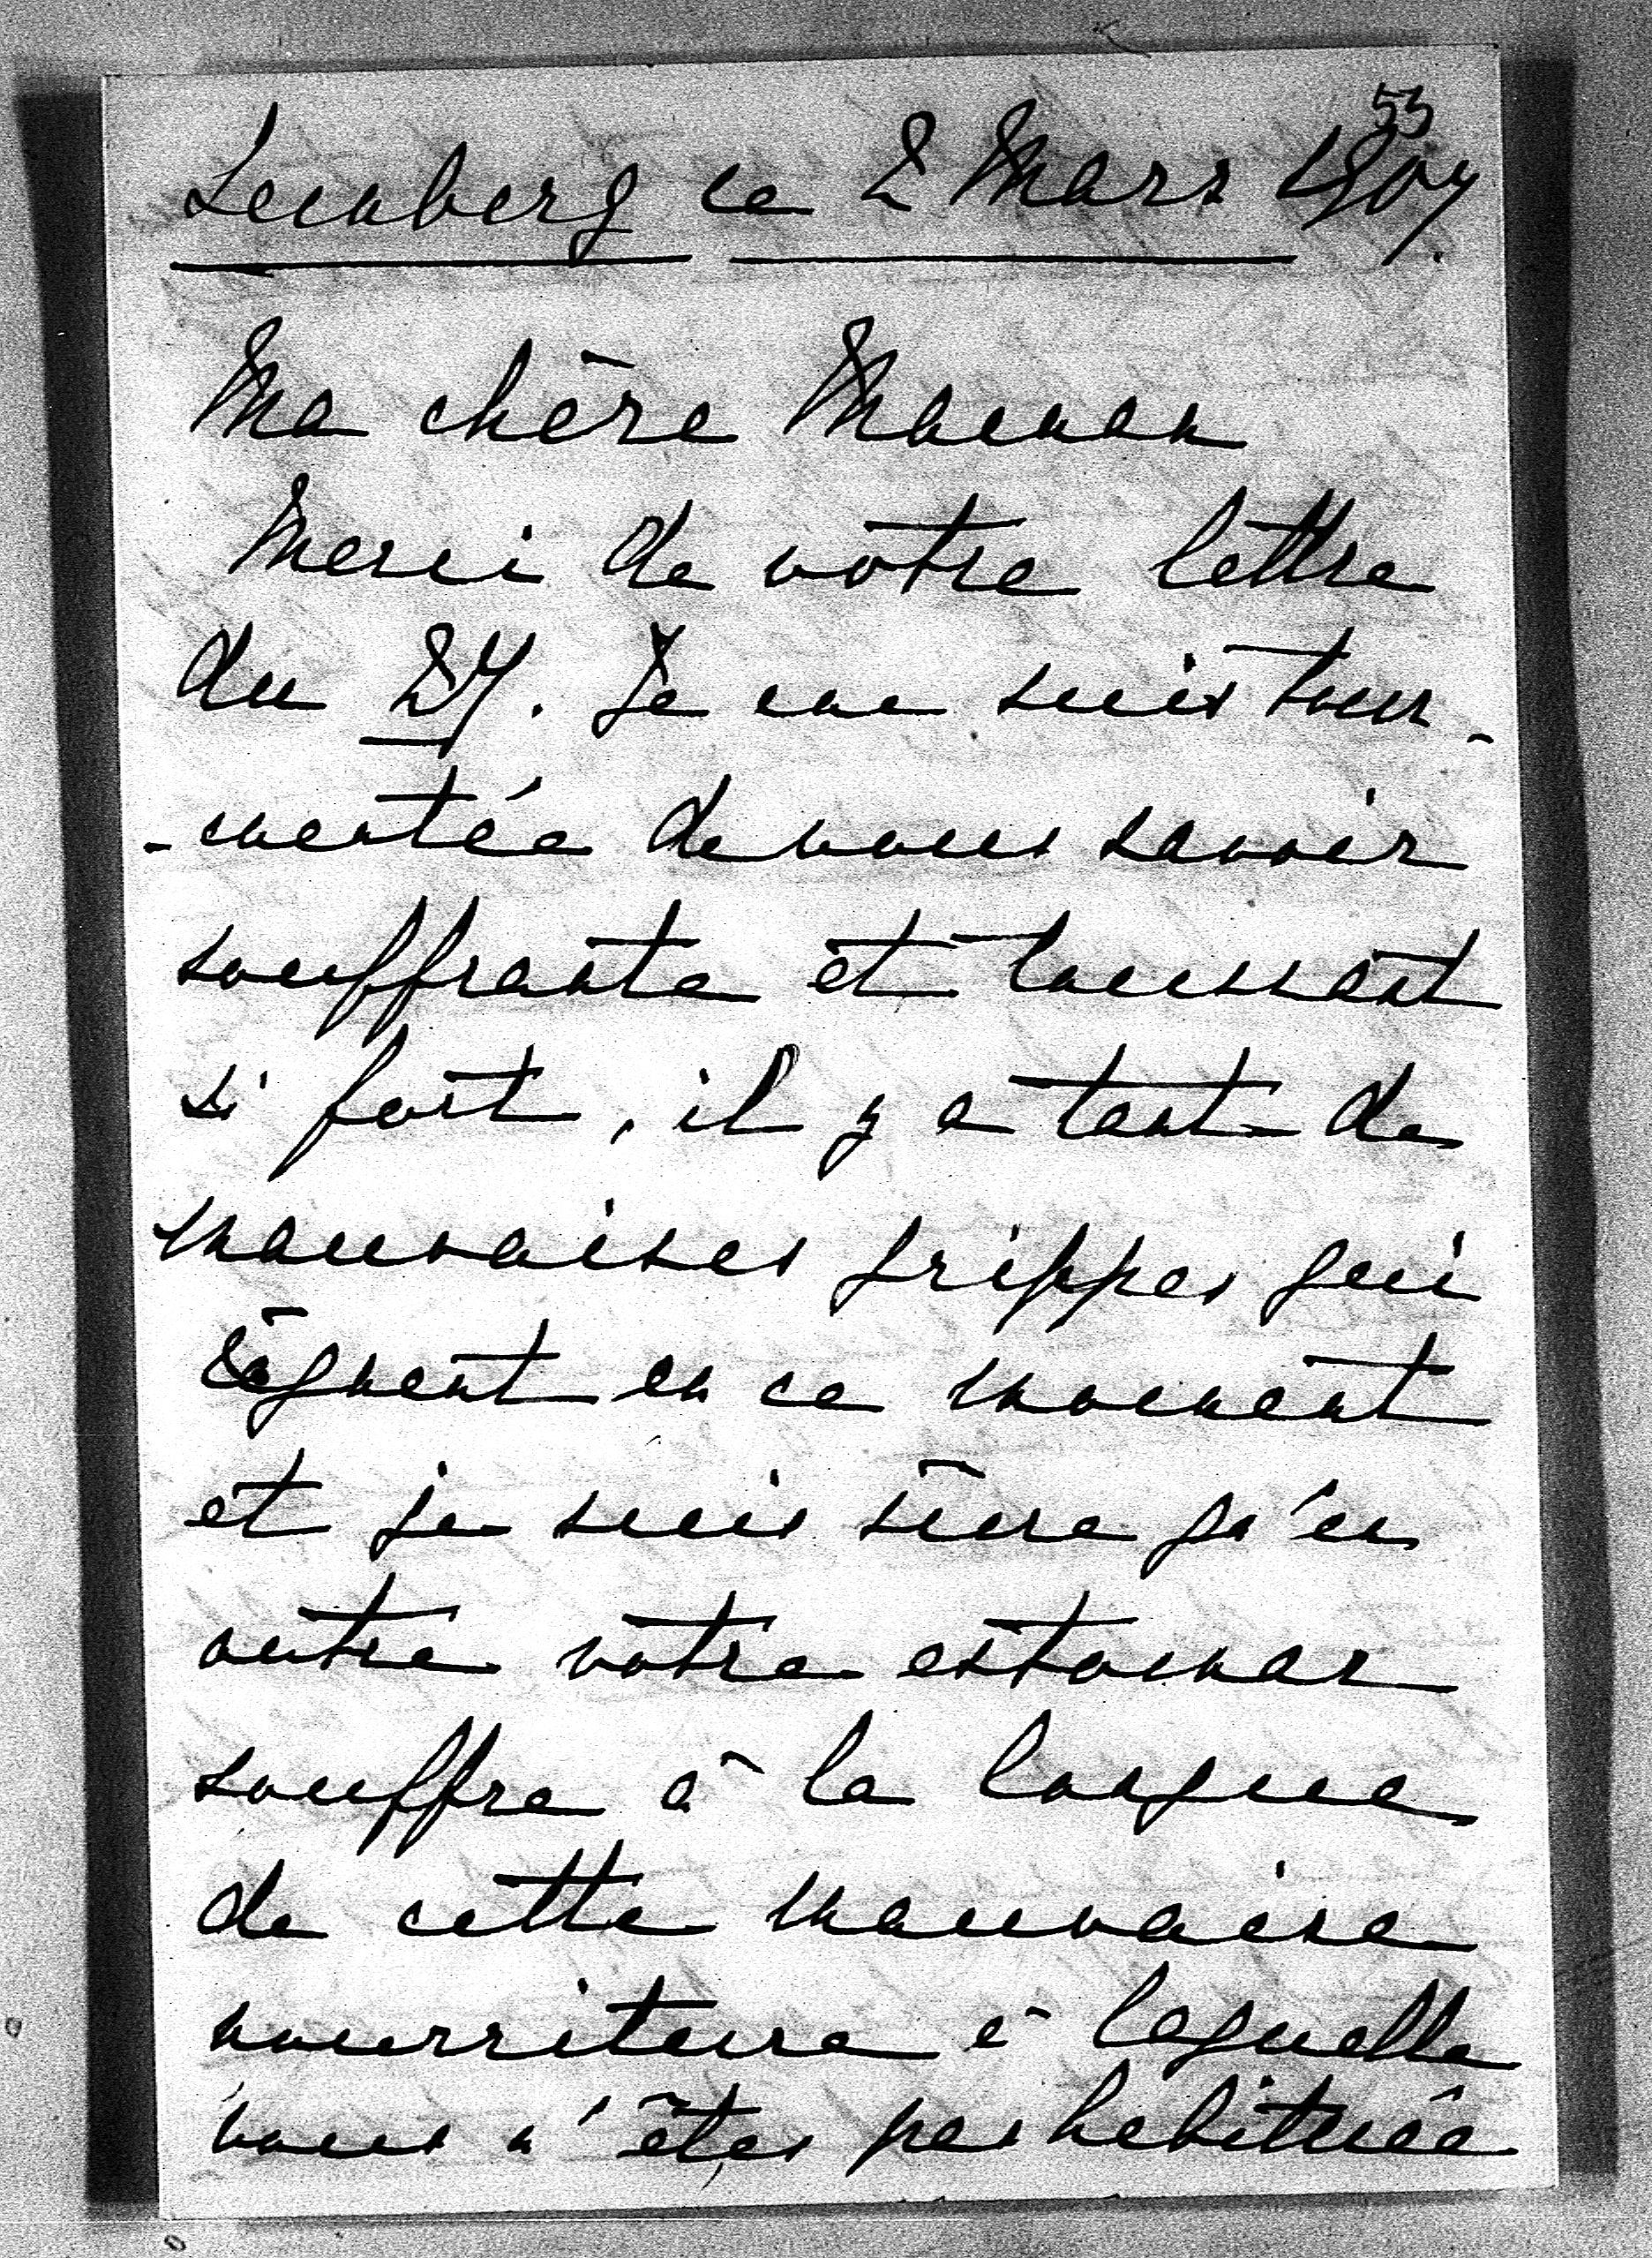 53
Lemberg ce 2 Mars 1907.
Ma chère Maman
Merci de votre lettre
du 27. Je me suis tour-
-mentée de vous savoir
souffrante et toussant
si fort, il y a tant de
mauvaises grippes qui
règnent en ce moment
et je suis sûre qu'en
outre votre estomac
souffre à la longue
de cette mauvaise
nourriture à laquelle
vous n'êtes pas habituée